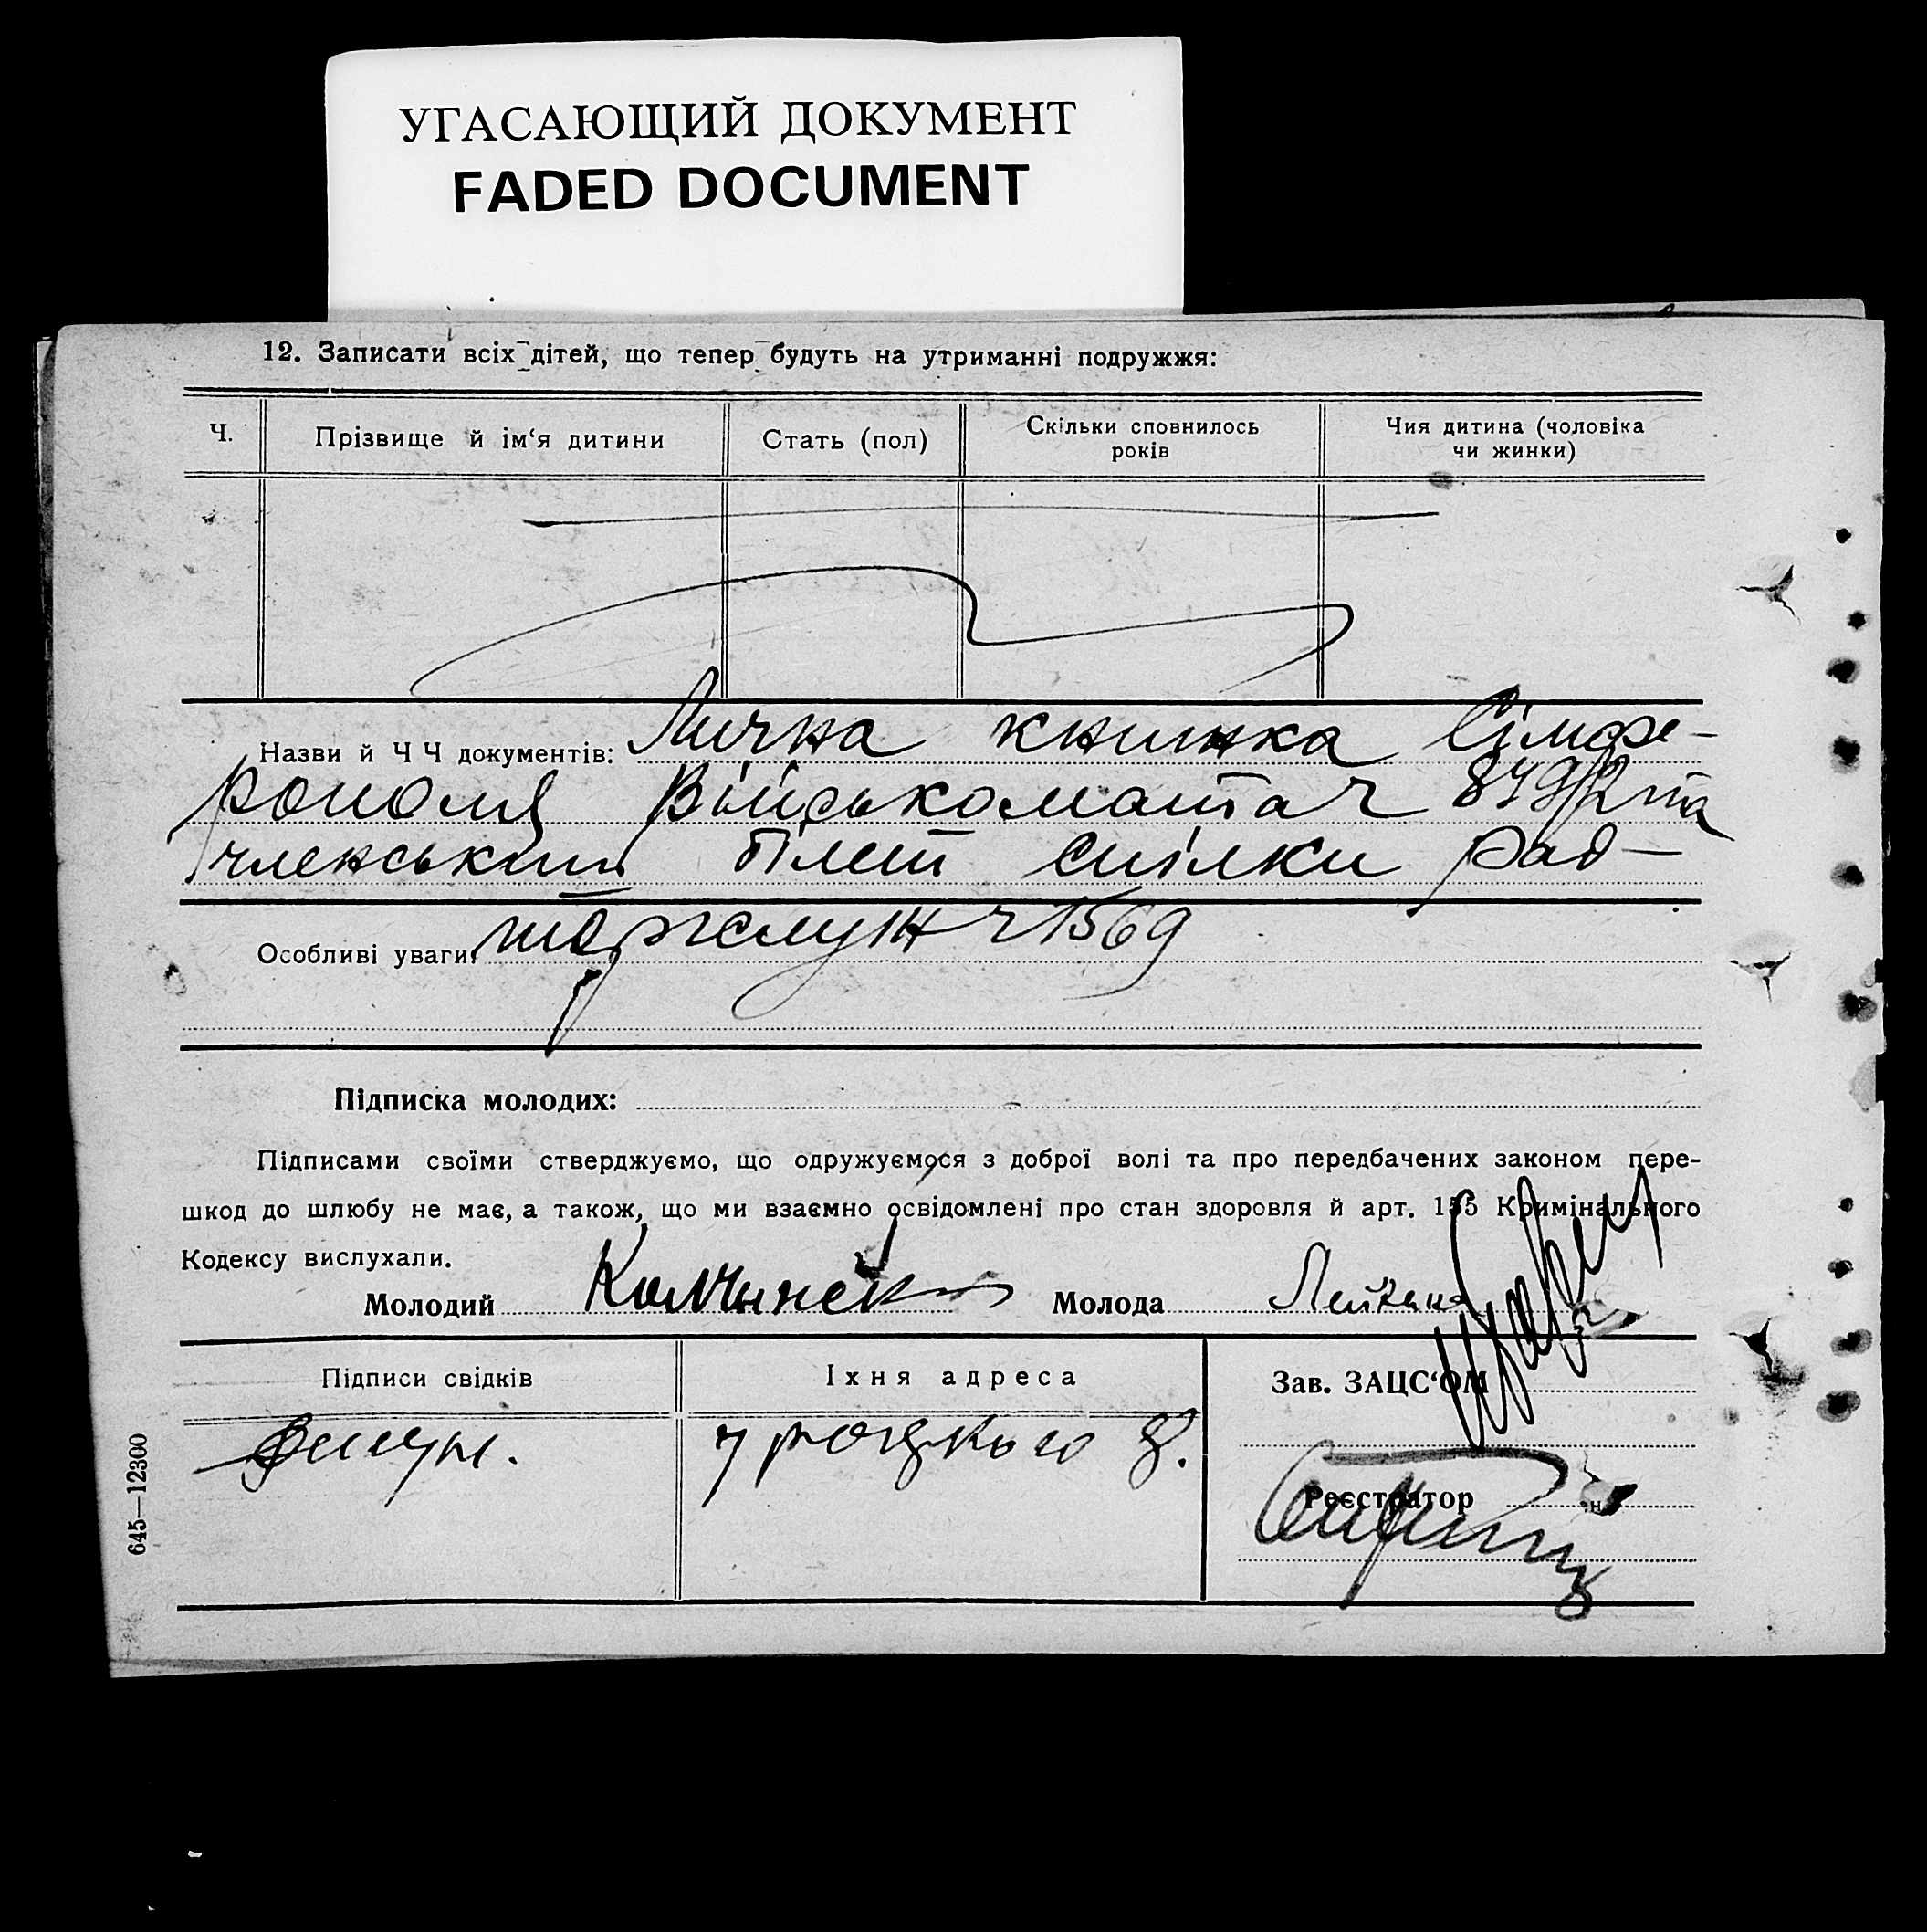 УГАСАЮЩИЙ ДОКУМЕНТ
FADED DOCUMENT
12. Записати всіх дітей, що тепер будуть на утриманні подружжя:
Ч.
Прізвище й ім‘я дитини
Стать (пол)
Скільки сповнилось
років
Чия дитина (чоловіка
чи жинки)
Назви й Ч Ч документів: Лична книжка Сімфе-
рополя Військомата ч 879/2 та
членський білет спілки Рад-
Особливі уваги: торгслуж ч 1569
Підписка молодих:
Підписами своїми стверджуємо, що одружуємося з доброї волі та про передбачених законом пере-
шкод до шлюбу не має, а також, що ми взаємно освідомлені про стан здоровля й арт. 155 Кримінального
Кодексу вислухали.
Молодий
Молода
Підписи свідків
Їхня адреса
Зав. ЗАЦС‘ОМ
Троцького 8.
Реєстратор
645—12300